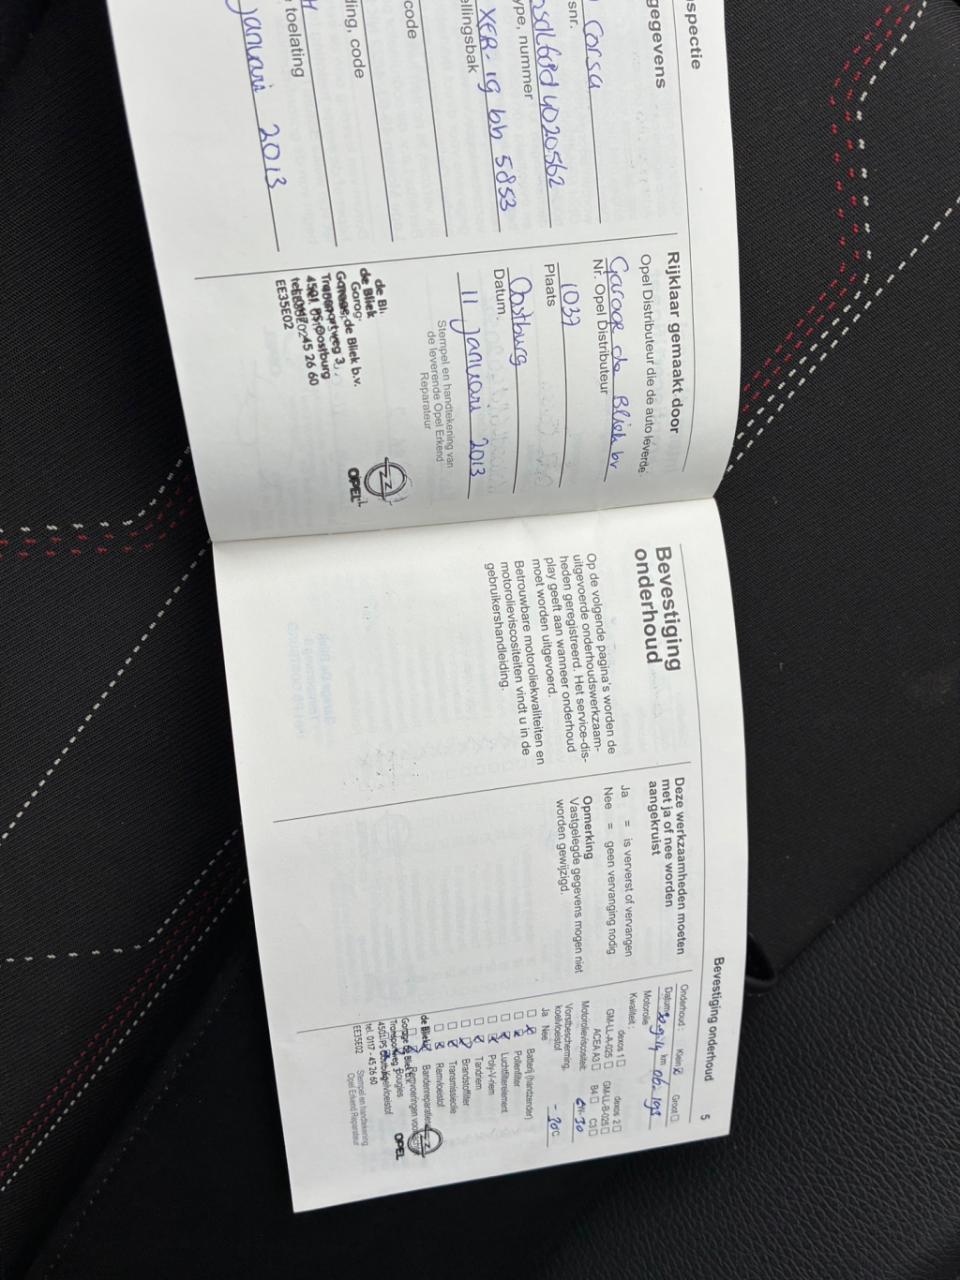 spectie
gegevens
Corsa
snr.
ype, nummer
ellingsbak
XER. 19 bb 5853
code
ding, code
toelating
januari 2013
Rijklaar gemaakt door
Opel Distributeur die de auto leverde
Garage de Bliek bv
Nr. Opel Distributeur
1037
Plaats
Oostburg
Datum.
11 januari 2013
Stempel en handtekening van
de leverende Opel Erkend
Reparateur
de Bliek
Garage de Bliek b.v.
Transportweg 3,
4501 PS Oostburg
tel. 0117-45 26 60
EE35E02
OPEL
Bevestiging
onderhoud
Op de volgende pagina's worden de
uitgevoerde onderhoudswerkzaam-
heden geregistreerd. Het service-dis-
play geeft aan wanneer onderhoud
moet worden uitgevoerd.
Betrouwbare motoroliekwaliteiten en
motorolieviscositeiten vindt u in de
gebruikershandleiding.
Deze werkzaamheden moeten
met ja of nee worden
aangekruist
Ja = is ververst of vervangen
Nee = geen vervanging nodig
Opmerking
Vastgelegde gegevens mogen niet
worden gewijzigd.
Bevestiging onderhoud 5
Onderhoud: Klein Groot
Datum km
Motorolie
Kwaliteit: dexos 1 dexos 2
GM-LL-A-025 GM-LL-B-025
ACEA A3 B4 C3
Motorolieviscositeit:
Vorstbescherming,
koelvloeistof -30°C
Ja Nee
Batterij (handzender)
Pollenfilter
Luchtfilterelement
Poly-V-riem
Tandriem
Brandstoffilter
Transmissieolie
Remvloeistof
Bandenreparatie
Remvoeringen
Bougies
Koelvloeistof
de Bliek
Garage de Bliek b.v.
Transportweg 3,
4501 PS Oostburg
tel. 0117 - 45 26 60
EE35E02
OPEL
Stempel en handtekening
Opel Erkend Reparateur